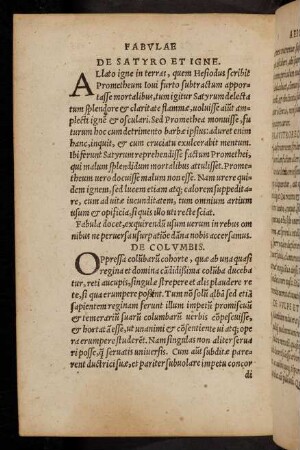 FABVLAE
DE SATYRO ET IGNE.
ALlato igne in terras, quem Hesiodus scribit
Prometheum Ioui furto subtractum appor
tasse mortalibus, tum igitur Satyrum delecta
tum splendore & claritate flammæ, uoluisse aiūt am
plecti ignē & osculari. Sed Prometheа monuisse, fu
turum hoc cum detrimento barbæ ipsius: aduret enim
hanc, inquit, & cum cruciatu exulcerabit mentum.
Ibi ferunt Satyrum reprehendisse factum Promethei,
qui malum splendidum mortalibus attulisset. Prome
theum uero docuisse malum non esse. Nam urere qui
dem ignem, sed lucem etiam atq; calorem suppedita
re, cum ad uitæ iucunditatem, tum omnium artium
usum & opificia, si quis illo uti recte sciat.
Fabula docet, exquirendū usum uerum in rebus om
nibus ne peruersi usurpatiōe dāna nobis accersamus.
DE COLVMBIS.
OPpressa colūbarū cohorte, qua ab una quasi
regina et domina cādidissima colūba duceba
tur, reti aucupis, singulæ strepere et alis plaudere
rete, si qua erumpere possent. Tum nō solū albā sed etiā
sapientem reginam ferunt illum impetū promiscuū
& temerariū suarū columbarū uerbis cōpescuisse,
& hortatā esse, ut unanimi & cōsentiente ui atq; ope
ra erumpere studerēt. Nam singulas non aliter serua
ri posse, q̄ seruatis uniuersis. Cum aūt subditæ parue
rent ductrici suæ, et pariter subuolare impetu concor
di